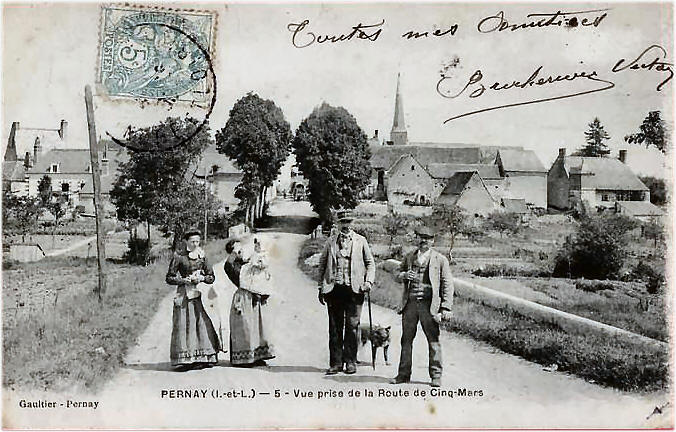 Toutes mes amitiés
5
PERNAY (I.-et-L.) — 5 - Vue prise de la Route de Cinq-Mars
Gaultier - Pernay